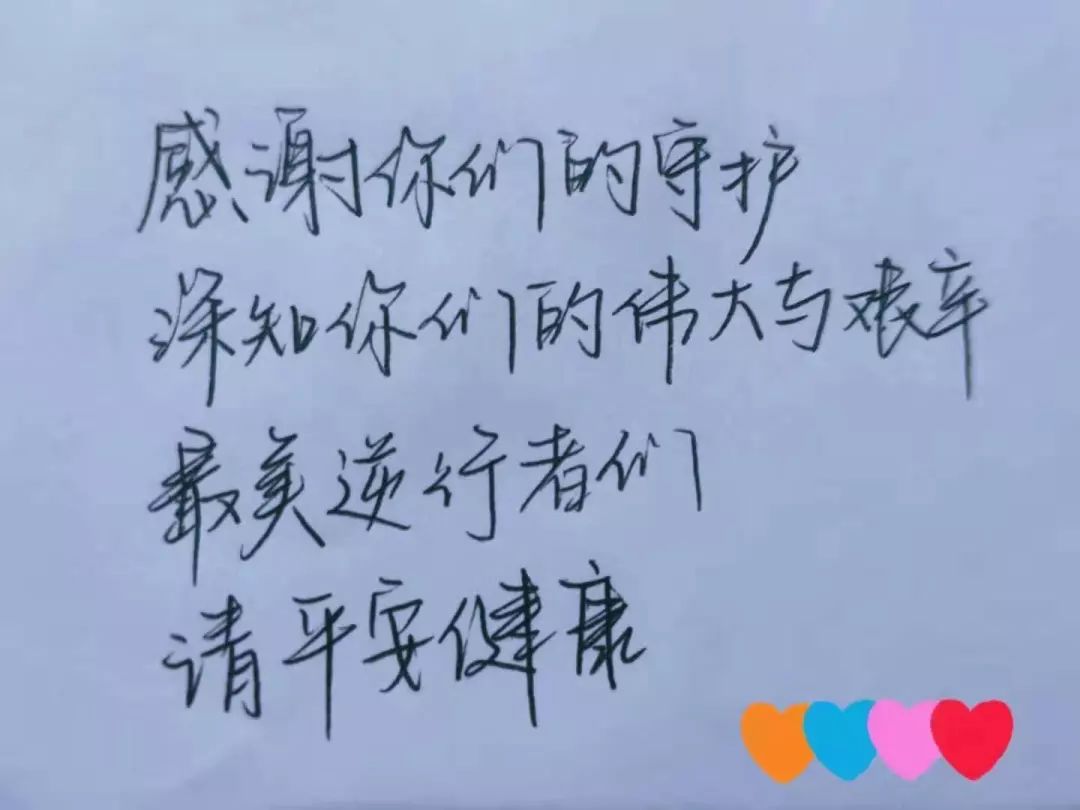 感谢你们的守护
深知你们的伟大与艰辛
最美逆行者们
请平安健康